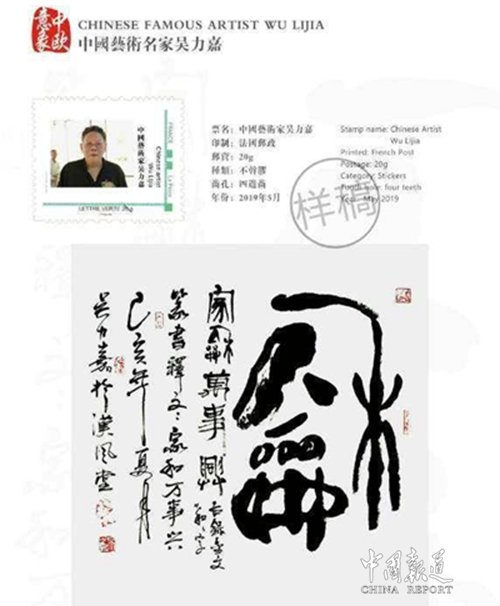 中欧
意象
CHINESE FAMOUS ARTIST WU LIJIA
中國藝術名家吴力嘉
FRANCE
La Poste
中國藝術家吴力嘉
Chinese artist
Wu Lijia
LETTRE VERTE 20g
票名：中國藝術家吴力嘉
印制：法國郵政
郵資：20g
種類：不幹膠
齒孔：四邊齒
年份：2019年5月
Stamp name: Chinese Artist
Wu Lijia
Printed: French Post
Postage: 20g
Category: Stickers
Tooth hole: four teeth
Year: May 2019
样稿
龢
家龢萬事興
篆書釋文：家和万事兴
己亥年夏月
吴力嘉於漢風堂
中国报道
CHINA REPORT